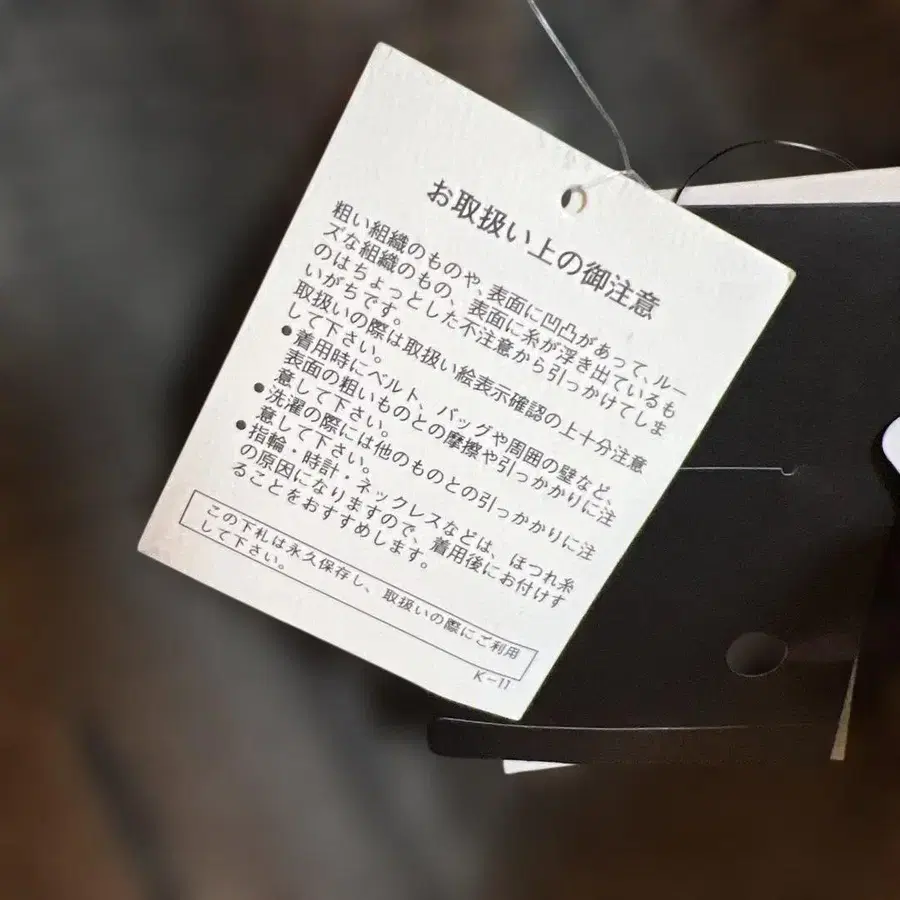 お取扱い上の御注意
粗い組織のものや、表面に凹凸があって、ルー
ズな組織のもの、表面に糸が浮き出ているも
のはちょっとした不注意から引っかけてしま
いがちです。
取扱いの際は取扱い絵表示確認の上十分注意
して下さい。
●着用時にベルト、バッグや周囲の壁など、
表面の粗いものとの摩擦や引っかかりに注
意して下さい。
●洗濯の際には他のものとの引っかかりに注
意して下さい。
●指輪・時計・ネックレスなどは、ほつれ糸
の原因になりますので、着用後にお付けす
ることをおすすめします。
この下札は永久保存し、取扱いの際にご利用
して下さい。
K-11